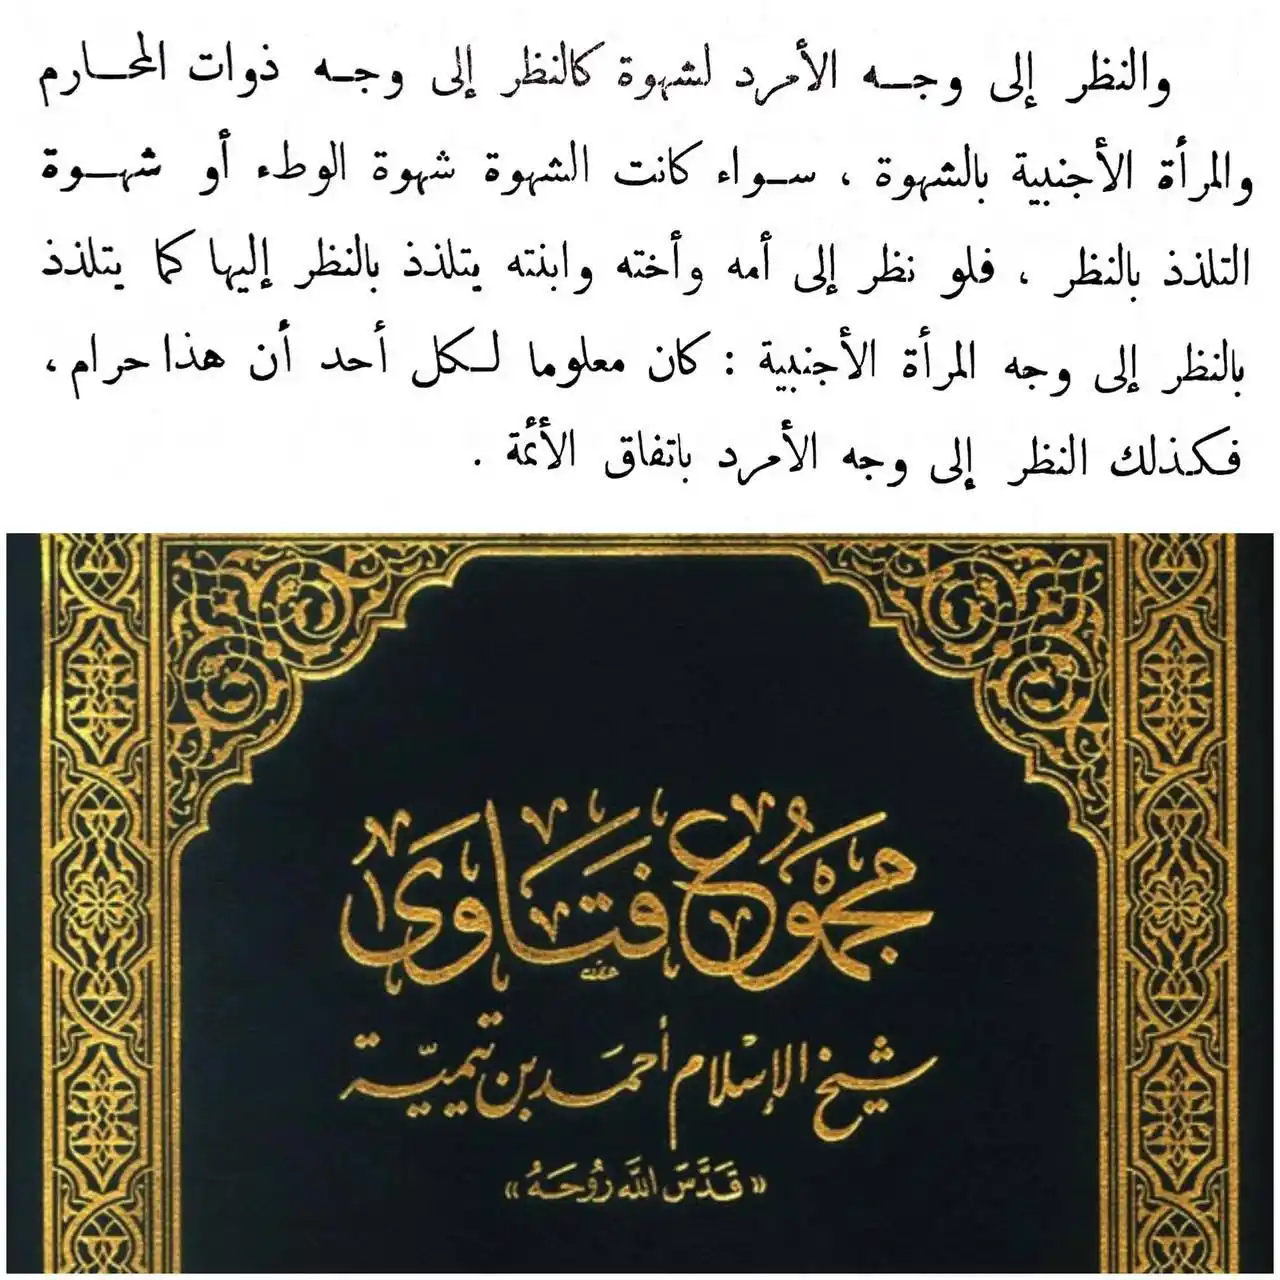 والنظر إلى وجـــه الأمرد لشهوة كالنظر إلى وجـه ذوات المحـارم
والمرأة الأجنبية بالشهوة ، ســواء كانت الشهوة شهوة الوطء أو شهـــوة
التلذذ بالنظر ، فلو نظر إلى أمه وأخته وابنته يتلذذ بالنظر إليها كما يتلذذ
بالنظر إلى وجه المرأة الأجنبية : كان معلوما لـكل أحد أن هذا حرام ،
فـكذلك النظر إلى وجه الأمرد باتفاق الأئمة .
مجموع فتاوى
شيخ الإسلام أحمد بن تيمية
« قَدَّسَ اللهُ رُوحَهُ »